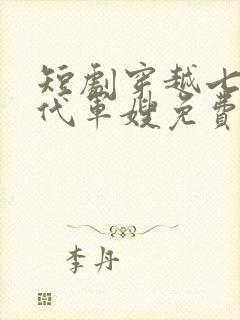 短劇穿越七
代軍嫂免費
李丹